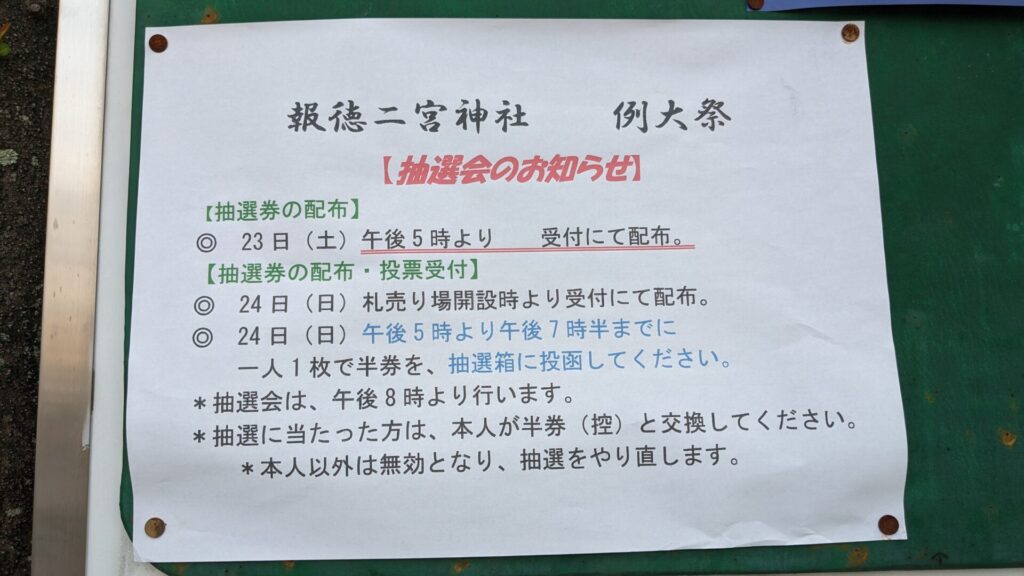 報徳二宮神社　　例大祭
【抽選会のお知らせ】
【抽選券の配布】
◎　23日（土）午後5時より　　受付にて配布。
【抽選券の配布・投票受付】
◎　24日（日）札売り場開設時より受付にて配布。
◎　24日（日）午後5時より午後7時半までに
一人1枚で半券を、抽選箱に投函してください。
＊抽選会は、午後8時より行います。
＊抽選に当たった方は、本人が半券（控）と交換してください。
＊本人以外は無効となり、抽選をやり直します。